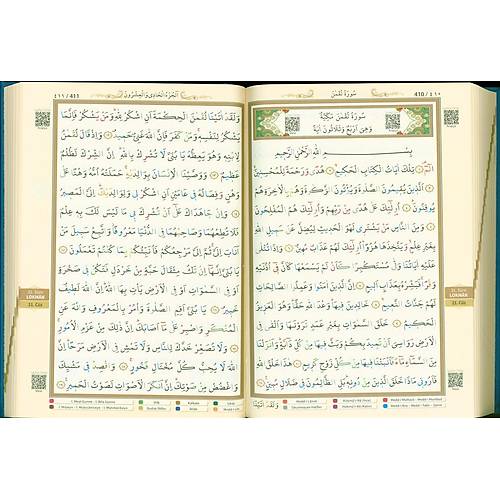 ٤١٠ / 410
سُورَةُ لُقْمٰنَ
سُورَةُ لُقْمٰنَ مَكِّيَّةٌ
وَهِيَ اَرْبَعٌ وَثَلَاثُونَ اٰيَةً
بِسْمِ اللّٰهِ الرَّحْمٰنِ الرَّحِيمِ
الٓمٓ تِلْكَ اٰيَاتُ الْكِتَابِ الْحَكِيمِ هُدًى وَرَحْمَةً لِلْمُحْسِنِينَ
اَلَّذِينَ يُقِيمُونَ الصَّلٰوةَ وَيُؤْتُونَ الزَّكٰوةَ وَهُمْ بِالْاٰخِرَةِ هُمْ
يُوقِنُونَ اُولٰئِكَ عَلٰى هُدًى مِنْ رَبِّهِمْ وَاُولٰئِكَ هُمُ الْمُفْلِحُونَ
وَمِنَ النَّاسِ مَنْ يَشْتَرِي لَهْوَ الْحَدِيثِ لِيُضِلَّ عَنْ سَبِيلِ اللّٰهِ
بِغَيْرِ عِلْمٍ وَيَتَّخِذَهَا هُزُوًا اُولٰئِكَ لَهُمْ عَذَابٌ مُهِينٌ وَاِذَا تُتْلٰى
عَلَيْهِ اٰيَاتُنَا وَلّٰى مُسْتَكْبِرًا كَاَنْ لَمْ يَسْمَعْهَا كَاَنَّ فِي اُذُنَيْهِ
وَقْرًا فَبَشِّرْهُ بِعَذَابٍ اَلِيمٍ اِنَّ الَّذِينَ اٰمَنُوا وَعَمِلُوا الصَّالِحَاتِ
لَهُمْ جَنَّاتُ النَّعِيمِ خَالِدِينَ فِيهَا وَعْدَ اللّٰهِ حَقًّا وَهُوَ الْعَزِيزُ
الْحَكِيمُ خَلَقَ السَّمٰوَاتِ بِغَيْرِ عَمَدٍ تَرَوْنَهَا وَاَلْقٰى فِي
الْاَرْضِ رَوَاسِيَ اَنْ تَمِيدَ بِكُمْ وَبَثَّ فِيهَا مِنْ كُلِّ دَابَّةٍ وَاَنْزَلْنَا
مِنَ السَّمَاءِ مَاءً فَاَنْبَتْنَا فِيهَا مِنْ كُلِّ زَوْجٍ كَرِيمٍ هٰذَا خَلْقُ اللّٰهِ
فَاَرُونِي مَاذَا خَلَقَ الَّذِينَ مِنْ دُونِهِ بَلِ الظَّالِمُونَ فِي ضَلَالٍ مُبِينٍ
وَلَقَدْ اٰتَيْنَا
31. Sûre
LOKMÂN
21. Cüz
اَلْجُزْءُ الْحَادِي وَالْعِشْرُونَ
٤١١ / 411
وَلَقَدْ اٰتَيْنَا لُقْمٰنَ الْحِكْمَةَ اَنِ اشْكُرْ لِلّٰهِ وَمَنْ يَشْكُرْ فَاِنَّمَا
يَشْكُرُ لِنَفْسِهِ وَمَنْ كَفَرَ فَاِنَّ اللّٰهَ غَنِيٌّ حَمِيدٌ وَاِذْ قَالَ لُقْمٰنُ
لِابْنِهِ وَهُوَ يَعِظُهُ يَا بُنَيَّ لَا تُشْرِكْ بِاللّٰهِ اِنَّ الشِّرْكَ لَظُلْمٌ
عَظِيمٌ وَوَصَّيْنَا الْاِنْسَانَ بِوَالِدَيْهِ حَمَلَتْهُ اُمُّهُ وَهْنًا عَلٰى
وَهْنٍ وَفِصَالُهُ فِي عَامَيْنِ اَنِ اشْكُرْ لِي وَلِوَالِدَيْكَ اِلَيَّ الْمَصِيرُ
وَاِنْ جَاهَدَاكَ عَلٰى اَنْ تُشْرِكَ بِي مَا لَيْسَ لَكَ بِهِ عِلْمٌ
فَلَا تُطِعْهُمَا وَصَاحِبْهُمَا فِي الدُّنْيَا مَعْرُوفًا وَاتَّبِعْ سَبِيلَ مَنْ
اَنَابَ اِلَيَّ ثُمَّ اِلَيَّ مَرْجِعُكُمْ فَاُنَبِّئُكُمْ بِمَا كُنْتُمْ تَعْمَلُونَ
يَا بُنَيَّ اِنَّهَا اِنْ تَكُ مِثْقَالَ حَبَّةٍ مِنْ خَرْدَلٍ فَتَكُنْ فِي صَخْرَةٍ
اَوْ فِي السَّمٰوَاتِ اَوْ فِي الْاَرْضِ يَاْتِ بِهَا اللّٰهُ اِنَّ اللّٰهَ لَطِيفٌ
خَبِيرٌ يَا بُنَيَّ اَقِمِ الصَّلٰوةَ وَاْمُرْ بِالْمَعْرُوفِ وَانْهَ عَنِ
الْمُنْكَرِ وَاصْبِرْ عَلٰى مَا اَصَابَكَ اِنَّ ذٰلِكَ مِنْ عَزْمِ الْاُمُورِ
وَلَا تُصَعِّرْ خَدَّكَ لِلنَّاسِ وَلَا تَمْشِ فِي الْاَرْضِ مَرَحًا اِنَّ
اللّٰهَ لَا يُحِبُّ كُلَّ مُخْتَالٍ فَخُورٍ وَاقْصِدْ فِي مَشْيِكَ
وَاغْضُضْ مِنْ صَوْتِكَ اِنَّ اَنْكَرَ الْاَصْوَاتِ لَصَوْتُ الْحَمِيرِ
31. Sûre
LOKMÂN
21. Cüz